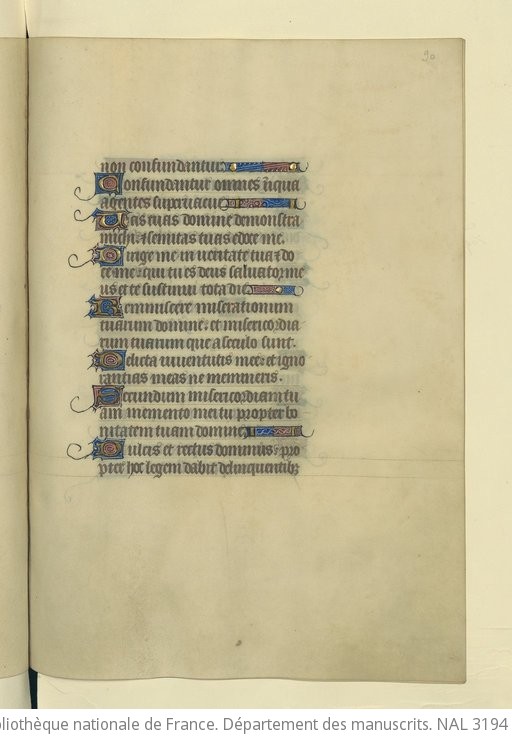 90
non confundantur.
Confundantur omnes iniqua
agentes supervacue.
Vias tuas domine demonstra
michi. et semitas tuas edoce me.
Dirige me in veritate tua et do
ce me. qui tu es deus salvator me
us et te sustinui tota die.
Reminiscere miserationum
tuarum domine. et misericordia
rum tuarum que a seculo sunt.
Delicta iuventutis mee. et igno
rantias meas ne memineris.
Secundum misericordiam tu
am memento mei tu propter bo
nitatem tuam domine.
Dulcis et rectus dominus. pro
pter hoc legem dabit delinquentibus
bliothèque nationale de France. Département des manuscrits. NAL 3194